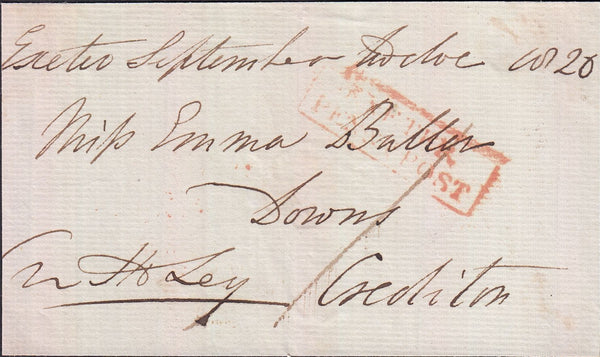 Exeter September Twelve 1820
EXETER
PENNY POST
Miss Emma Buller
Downs
Crediton
Ley